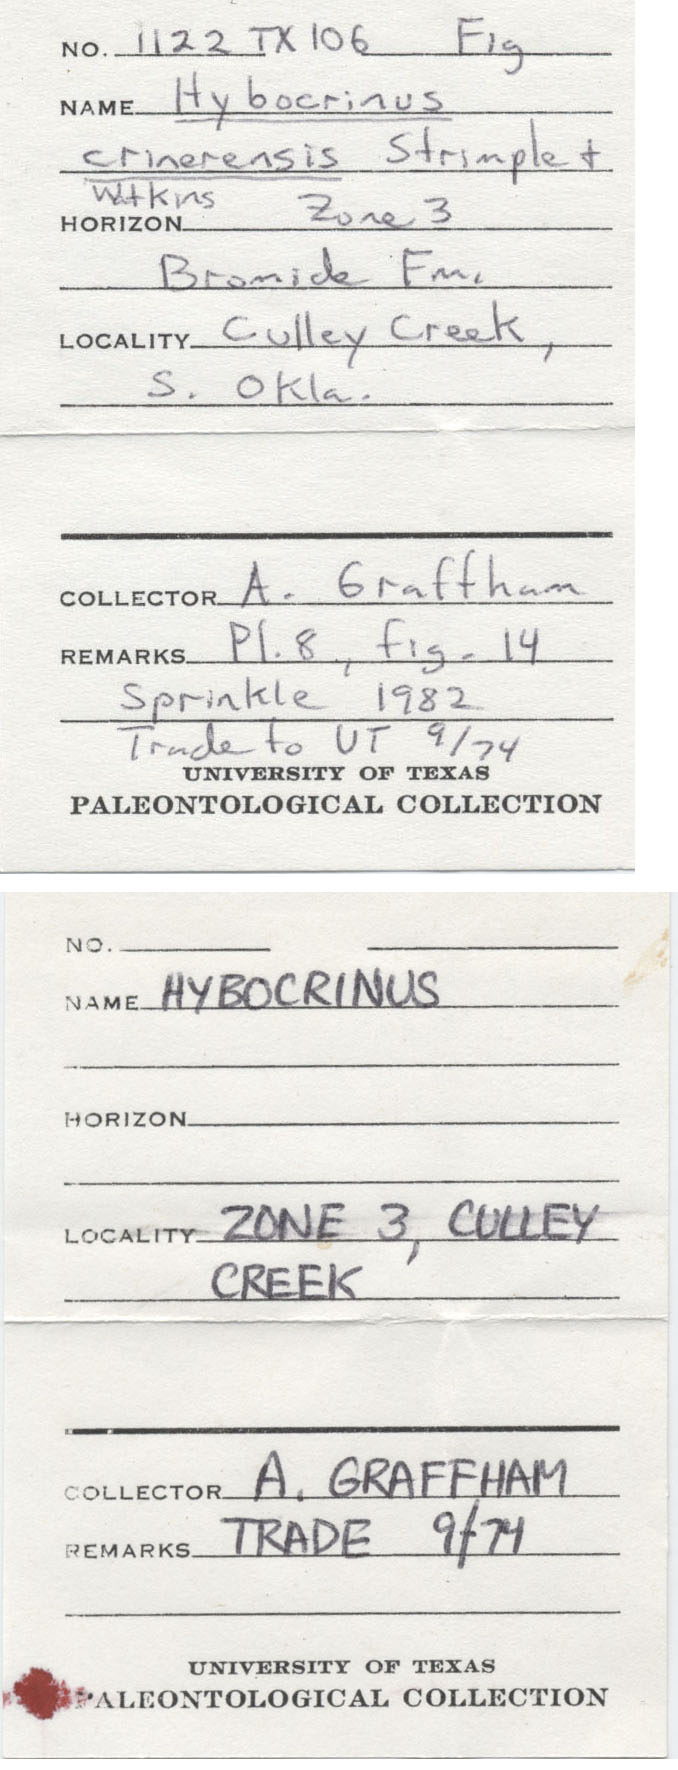 NO. 1122 TX 106 Fig
NAME Hybocrinus
crinerensis Strimple +
Watkins
HORIZON Zone 3
Bromide Fm.
LOCALITY Culley Creek,
S. Okla.
COLLECTOR A. Graffham
REMARKS Pl. 8, fig. 14
Sprinkle 1982
Trade to UT 9/74
UNIVERSITY OF TEXAS
PALEONTOLOGICAL COLLECTION
NO.
NAME HYBOCRINUS
HORIZON
LOCALITY ZONE 3, CULLEY
CREEK
COLLECTOR A. GRAFFHAM
REMARKS TRADE 9/74
UNIVERSITY OF TEXAS
PALEONTOLOGICAL COLLECTION